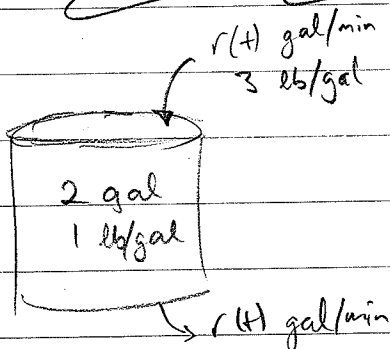 r(t) gal/min
3 lb/gal
2 gal
1 lb/gal
r(t) gal/min